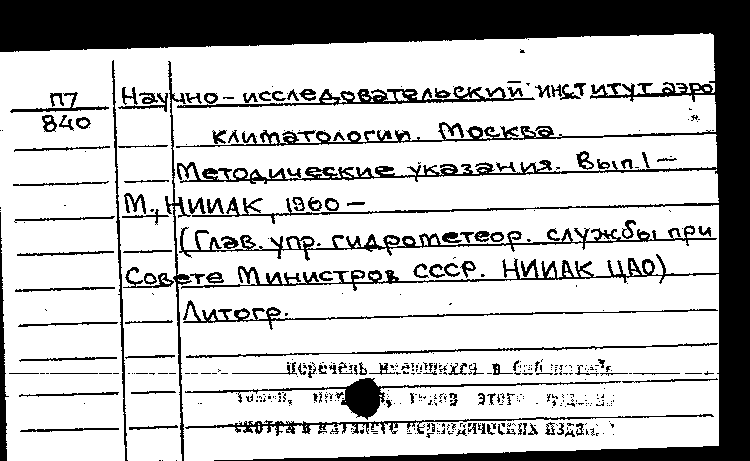 П7 Научно-исследовательский институт аэро
840 климатологии. Москва.
Методические указания. Вып.1 —
М., НИИАК, 1960 —
(Глав. упр. гидрометеор. службы при
Совете Министров СССР. НИИАК ЦАО)
Литогр.
Перечень имеющихся в
томов, годов этого
смотри в каталоге периодических